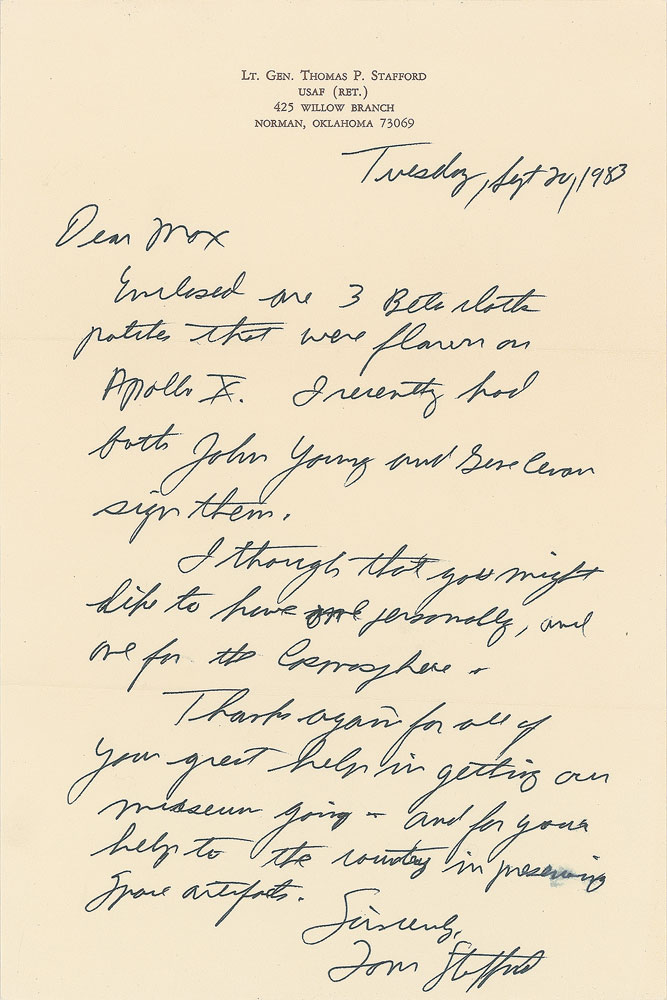 Lt. Gen. Thomas P. Stafford
USAF (RET.)
425 WILLOW BRANCH
NORMAN, OKLAHOMA 73069
Tuesday, Sept 20, 1983
Dear Max
Enclosed are 3 Beta cloth
patches that were flown on
Apollo X. I recently had
both John Young and Gene Cernan
sign them.
I though that you might
like to have one personally, and
one for the Cosmosphere.
Thanks again for all of
your great help in getting our
museum going - and for your
help to the country in preserving
Space artifacts.
Sincerely,
Tom Stafford